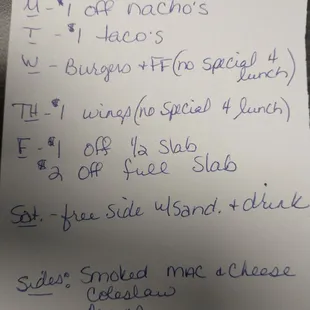 M - $1 off nacho's
T - $1 taco's
W - Burgers + FF (no special 4
lunch)
TH - $1 wings (no special 4 lunch)
F - $1 off 1/2 Slab
$2 off full Slab
Sat. - free side w/sand. + drink
Sides: Smoked mac & cheese
Coleslaw